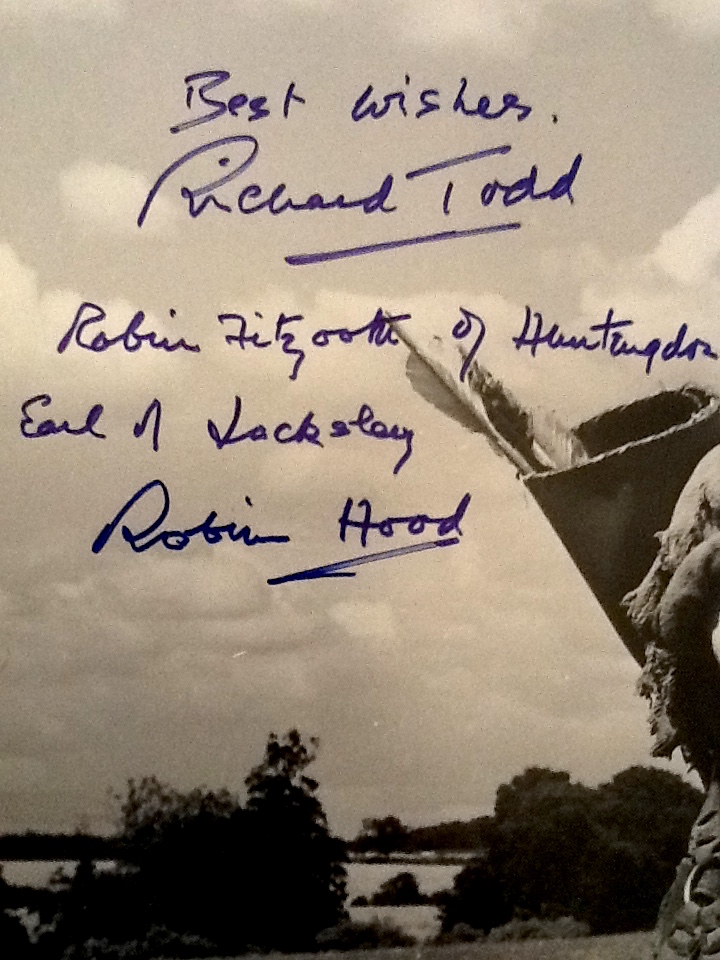 Best wishes.
Richard Todd
Robin Fitzooth of Huntingdon
Earl of Locksley
Robin Hood